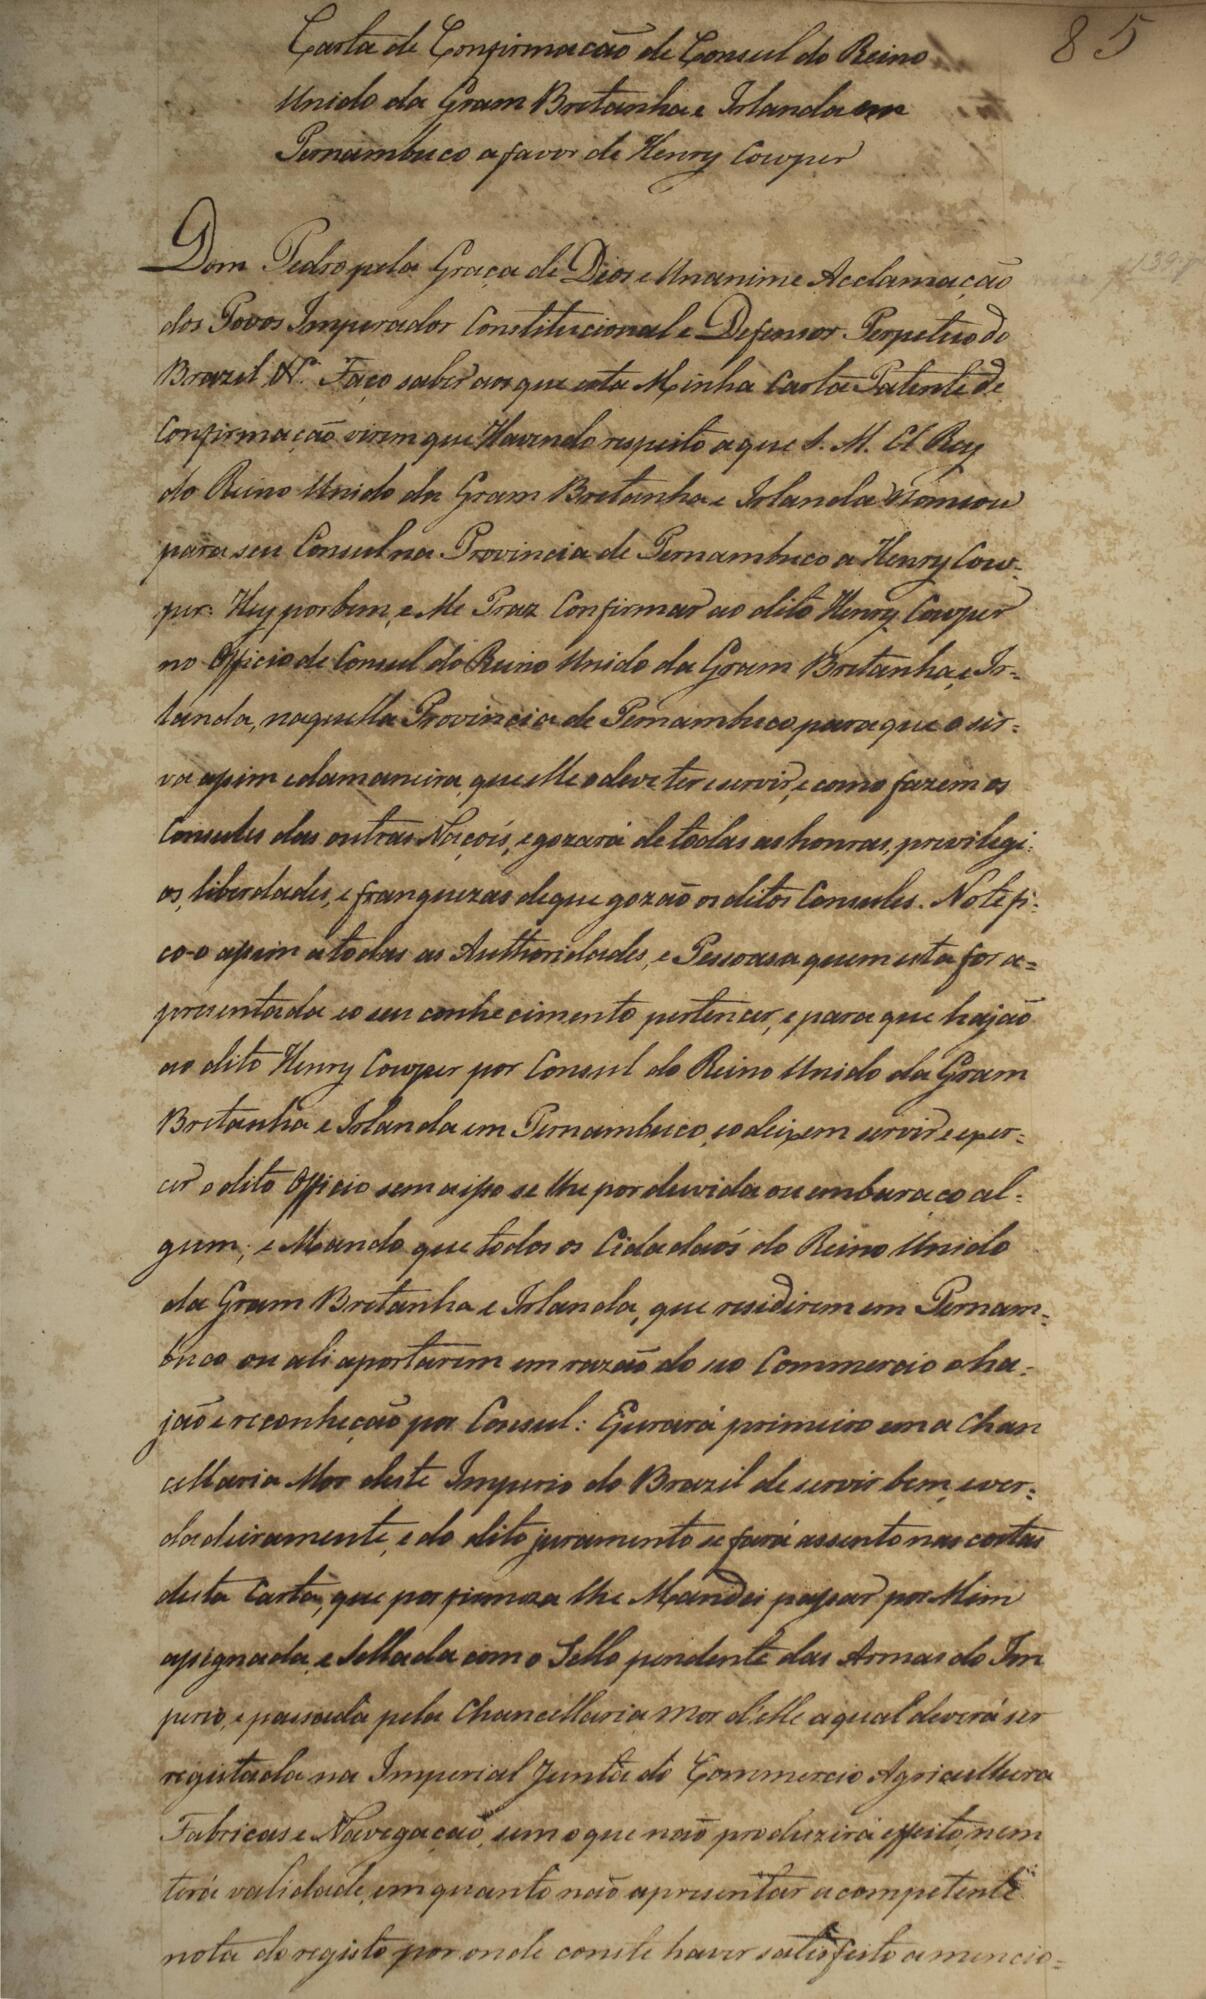 85
Carta de Confirmação de Consul do Reino
Unido da Gram Bretanha e Irlanda em
Pernambuco a favor de Henry Cowper
Dom Pedro pela Graça de Dios e Unanime Acclamação
dos Povos Imperador Constitucional e Defensor Perpetuo do
Brazil &ª. Faço saber aos que esta Minha Carta Patente de
Confirmação virem que Havendo respeito a que S. M. El Rey
do Reino Unido da Gram Bretanha e Irlanda Nomeou
para seu Consul na Provincia de Pernambuco a Henry Cow-
per: Hey por bem, e Me Praz Confirmar ao dito Henry Cowper
no Officio de Consul do Reino Unido da Gram Bretanha, e Ir=
landa, naquella Provincia de Pernambuco para que o sir=
va assim e da maneira, que elle o deve ter e servir, e como fazem os
Consules das outras Naçoís, e gozará de todas as honras, previlegi-
os, liberdades, e franquezas de que gozão os ditos Consules. Notefi-
co-o assim a todas as Authoridades, e Pessoas a quem esta for a=
presentada e o seu conhecimento pertencer, e para que hajaõ
ao dito Henry Cowper por Consul do Reino Unido da Gram
Bretanha e Irlanda em Pernambuco, e o deixem servir e exer-
cer o dito Officio sem a isso se lhe por duvida ou embaraço al-
gum; e Mando que todos os Cidadaõs do Reino Unido
da Gram Bretanha e Irlanda, que residirem em Pernam-
buco ou ali aportarem em razaõ do seo Commercio o ha-
jaõ e reconheçaõ por Consul: E jurará primeiro em a Chan
cellaria Mor deste Imperio do Brazil de servir bem, e ver-
dadeiramente, e do dito juramento se fará assento nas costas
desta Carta, que por firmeza lhe Mandei passar por Mim
assignada, e Sellada com o Sello pendente das Armas do Im
perio, e passada pela Chancellaria Mor d'elle a qual deverá ser
registada na Imperial Junta do Commercio Agricultura
Fabricas e Navegaçaõ, sem o que naõ produzirá effeito, nem
terá validade, em quanto naõ apresentar a competente
nota do registo por onde conste haver satisfeito a mencio=